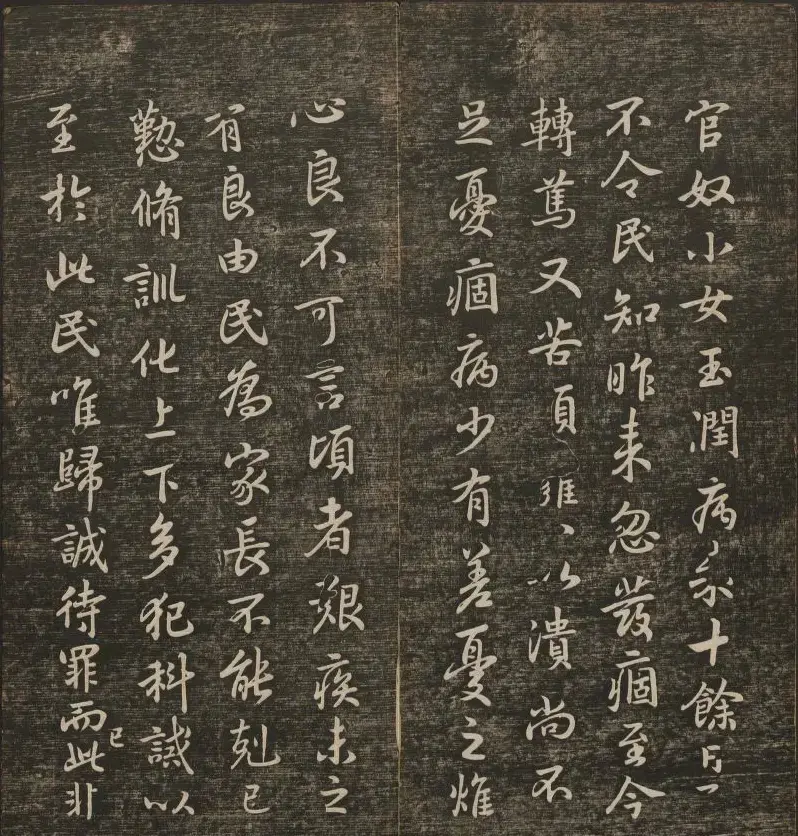 官奴小女玉潤病来十餘日了
不令民知昨来忽發痼至今
轉篤又苦頭癰、以潰尚不
足憂痼病少有差憂之燋
心良不可言頃者艱疾未之
有良由民為家長不能剋己
懃脩訓化上下多犯科誡以
至於此民唯歸誠待罪而已此非